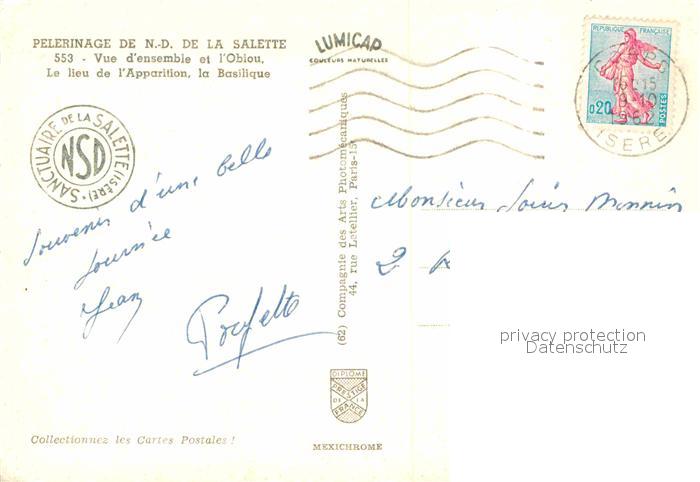 PELERINAGE DE N.-D. DE LA SALETTE
553 - Vue d'ensemble et l'Obiou,
Le lieu de l'Apparition, la Basilique
LUMICAP
COULEURS NATURELLES
REPUBLIQUE FRANÇAISE
0,20
POSTES
ISERE
SANCTUAIRE DE LA SALETTE (ISÈRE)
NSD
Souvenir d'une belle
journée
Jean
(62) Compagnie des Arts Photomécaniques
44, rue Letellier, Paris-15
Monsieur Louis
2
privacy protection
Datenschutz
DIPLOME
PRESTIGE
DE LA
FRANCE
Collectionnez les Cartes Postales !
MEXICHROME